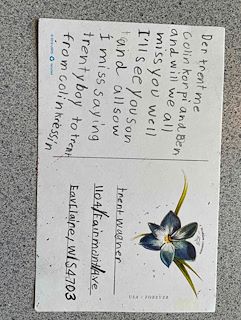 Den trent me
Colin korpi and Ben
and will we all
miss you well
I'll see you son
t and allsow
I miss saying
trentyboy to trent
from colin kressin
trent wagner
1104 Fairmont Ave
Eav Clairey, WI 54703
USA FOREVER